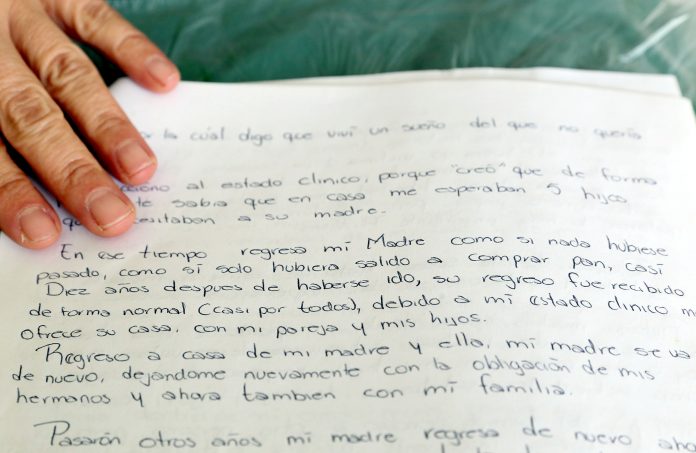 la cuál digo que viví un sueño del que no quería
al estado clinico, porque "creó" que de forma
te sabia que en casa me esperaban 5 hijos
qu esitaban a su madre.
En ese tiempo regresa mi Madre como si nada hubiese
pasado, como sí solo hubiera salido a comprar pan, casí
Diez años despues de haberse ido, su regreso fue recibido
de forma normal (casi por todos), debido a mi estado clinico m
ofrece su casa, con mi pareja y mis hijos.
Regreso a casa de mi madre y ella, mi madre se va
de nuevo, dejandome nuevamente con la obligación de mis
hermanos y ahora tambien con mi familia.
Pasarón otros años mi madre regresa de nuevo aho